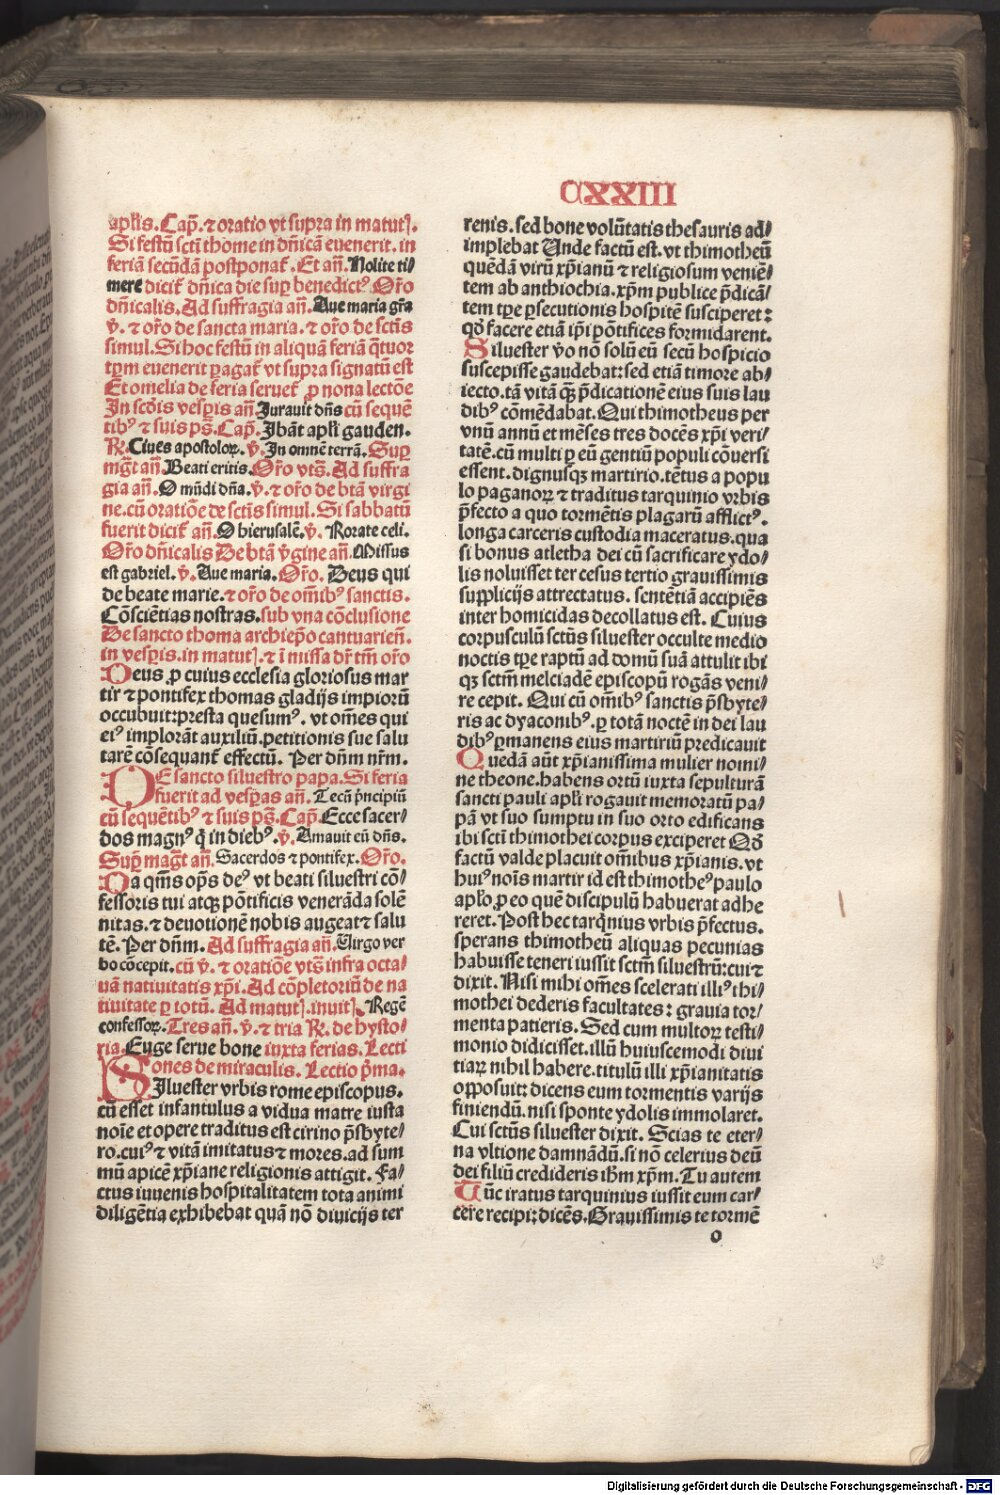 CXXIII
apl̄is. Cap̄. ⁊ oratio vt supra in matut̄.
Si festū sctī thome in dn̄icā euenerit. in
feriā secūdā postponat̄. Et añ. Nolite ti/
mere dicit̄ dn̄ica die sup̄ benedictꝰ Or̄o
dn̄icalis. Ad suffragia añ. Aue maria gr̄a
v̄. ⁊ or̄o de sancta maria. ⁊ or̄o de sctīs
simul. Si hoc festū in aliquā feriā q̄tuor
tp̄m euenerit ꝑagat̄ vt supra signatū est
Et omelia de feria seruet̄ ꝓ nona lectōe
In scd̄is vesp̄is añ. Jurauit dn̄s cū sequē
tibꝰ ⁊ suis ps̄. Cap̄. Ibāt apl̄i gauden.
R̄. Ciues apostoloꝝ. v̄. In omnē terrā. Sup̄
mḡt añ. Beati eritis. Or̄o vts̄. Ad suffra
gia añ. O mūdi dn̄a. v̄. ⁊ or̄o de btā virgi
ne. cū oratiōe de sctīs simul. Si sabbatū
fuerit dicit̄ añ. O hierusalē. v̄. Rorate celi.
Or̄o dn̄icalis De btā v̄gine añ. Missus
est gabriel. v̄. Aue maria. Or̄o. Deus qui
de beate marie. ⁊ or̄o de om̄ibꝰ sanctis.
Cōsciētias nostras. sub vna cōclusione
De sancto thoma archiep̄o cantuarieñ.
in vesp̄is. in matut̄. ⁊ ī missa dr̄ tm̄ or̄o
Deus ꝓ cuius ecclesia gloriosus mar
tir ⁊ pontifex thomas gladijs impiorū
occubuit: presta quesumꝰ. vt om̄es qui
eiꝰ implorāt auxiliū. petitionis sue salu
tarē cōsequant̄ effectū. Per dn̄m nr̄m.
DE sancto siluestro papa. Si feria
fuerit ad vesp̄as añ. Tecū p̄ncipiū
cū sequētibꝰ ⁊ suis ps̄. Cap̄. Ecce sacer/
dos magnꝰ q̄ in diebꝰ. v̄. Amauit eū dn̄s.
Sup̄ maḡt añ. Sacerdos ⁊ pontifex. Or̄o.
Da qm̄s op̄s deꝰ vt beati siluestri cō/
fessoris tui atqꝫ pōtificis venerāda solē
nitas. ⁊ deuotionē nobis augeat ⁊ salu
tē. Per dn̄m. Ad suffragia añ. Virgo ver
bo cōcepit. cū v̄. ⁊ oratiōe vts̄ infra octa/
uā natiuitatis xp̄i. Ad cōpletoriū de na
tiuitate ꝑ totū. Ad matut̄. inuit̄. Regē
confessoꝝ. Tres añ. v̄. ⁊ tria R̄. de hysto/
ria. Euge serue bone iuxta ferias. Lecti
ones de miraculis. Lectio p̄ma.
SIluester vrbis rome episcopus.
cū esset infantulus a vidua matre iusta
noīe et opere traditus est cirino p̄sbyte/
ro. cuiꝰ ⁊ vitā imitatus ⁊ mores. ad sum
mū apicē xp̄iane religionis attigit. Fa/
ctus iuuenis hospitalitatem tota animi
diligētia exhibebat quā nō diuicijs ter
renis. sed bone volūtatis thesauris ad/
implebat Unde factū est. vt thimotheū
quēdā virū xp̄ianū ⁊ religiosum veniē/
tem ab anthiochia. xp̄m publice p̄dicā/
tem tp̄e ꝑsecutionis hospitē susciperet:
qd̄ facere etiā ip̄i pōtifices formidarent.
Siluester v̄o nō solū eū secū hospicio
suscepisse gaudebat: sed etiā timore ab/
iecto. tā vitā q̄ꝫ p̄dicationē eius suis lau
dibꝰ cōmēdabat. Qui thimotheus per
vnū annū et mēses tres docēs xp̄i veri/
tatē. cū multi ꝑ eū gentiū populi cōuersi
essent. dignusqꝫ martirio. tētus a popu
lo paganoꝝ ⁊ traditus tarquinio vrbis
p̄fecto a quo tormētis plagarū afflictꝰ.
longa carceris custodia maceratus. qua
si bonus atletha dei cū sacrificare ydo/
lis noluisset ter cesus tertio grauissimis
supplicijs attrectatus. sentētiā accipiēs
inter homicidas decollatus est. Cuius
corpusculū sctūs siluester occulte medio
noctis tp̄e raptū ad domū suā attulit ibi
qꝫ sctm̄ melciadē episcopū rogās veni/
re cepit. Qui cū om̄ibꝰ sanctis p̄sbyte/
ris ac dyaconibꝰ. ꝑ totā noctē in dei lau
dibꝰ ꝑmanens eius martiriū predicauit
Quedā aūt xp̄ianissima mulier nomi/
ne theone. habens ortū iuxta sepulturā
sancti pauli apl̄i rogauit memoratū pa/
pā vt suo sumptu in suo orto edificans
ibi sctī thimothei corpus exciperet Qd̄
factū valde placuit om̄ibus xp̄ianis. vt
huiꝰ noīs martir id est thimotheꝰ paulo
apl̄o ꝓ eo quē discipulū habuerat adhe
reret. Post hec tarq̄nius vrbis p̄fectus.
sperans thimotheū aliquas pecunias
habuisse teneri iussit sctm̄ siluestrū: cui ⁊
dixit. Nisi mihi om̄es scelerati illiꝰ thi/
mothei dederis facultates: grauia tor/
menta patieris. Sed cum multoꝝ testi/
monio didicisset. illū huiuscemodi diui
tiaꝝ nihil habere. titulū illi xp̄ianitatis
opposuit: dicens eum tormentis varijs
finiendū. nisi sponte ydolis immolaret.
Cui sctūs siluester dixit. Scias te eter/
na vltione damnādū. si nō celerius deū
dei filiū credideris ih̄m xp̄m. Tu autem
Tūc iratus tarquinius iussit eum car/
cere recipi: dicēs. Grauissimis te tormē
o
Digitalisierung gefördert durch die Deutsche Forschungsgemeinschaft - DFG